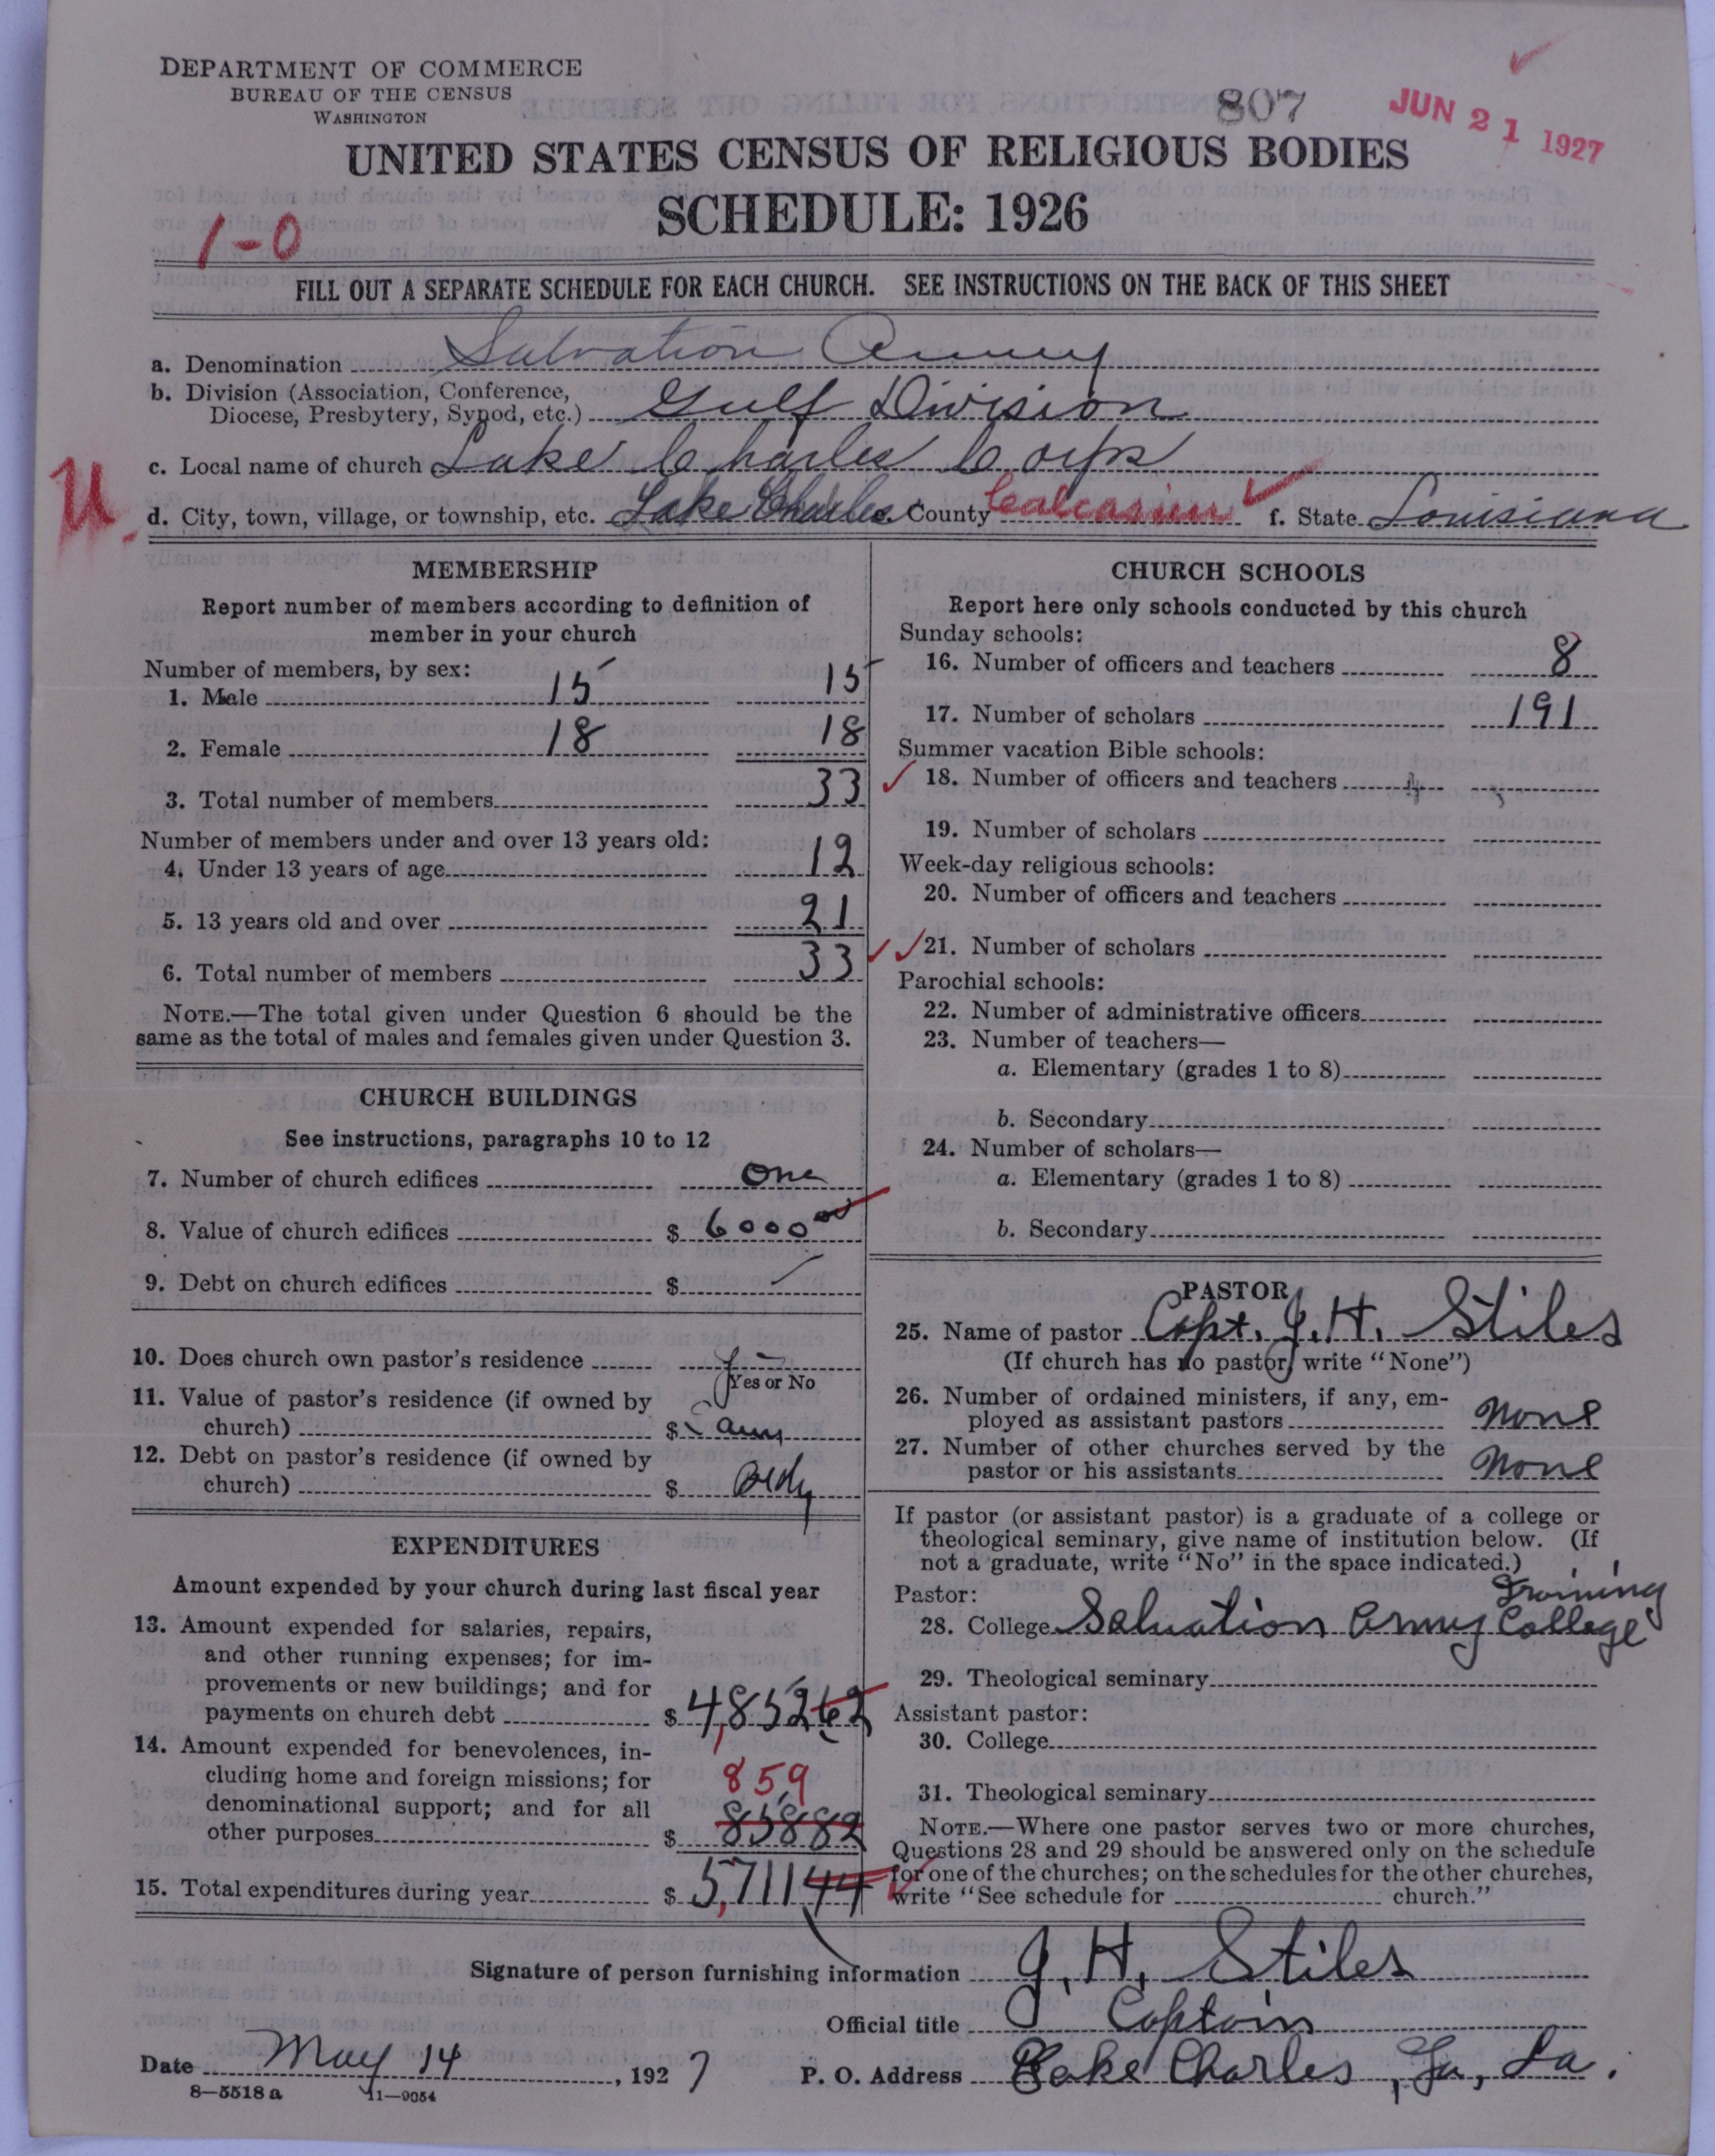 DEPARTMENT OF COMMERCE
BUREAU OF THE CENSUS
WASHINGTON
807
JUN 21 1927
UNITED STATES CENSUS OF RELIGIOUS BODIES
SCHEDULE: 1926
1-0
FILL OUT A SEPARATE SCHEDULE FOR EACH CHURCH. SEE INSTRUCTIONS ON THE BACK OF THIS SHEET
a. Denomination Salvation Army
b. Division (Association, Conference,
Diocese, Presbytery, Synod, etc.) Gulf Division
c. Local name of church Lake Charles Corps
U.
d. City, town, village, or township, etc. Lake Charles e. County Calcasieu f. State Louisiana
MEMBERSHIP
Report number of members according to definition of
member in your church
Number of members, by sex:
1. Male 15 15
2. Female 18 18
3. Total number of members 33
Number of members under and over 13 years old:
4. Under 13 years of age 12
5. 13 years old and over 21
6. Total number of members 33
NOTE.—The total given under Question 6 should be the
same as the total of males and females given under Question 3.
CHURCH BUILDINGS
See instructions, paragraphs 10 to 12
7. Number of church edifices One
8. Value of church edifices $ 6000 00
9. Debt on church edifices $
10. Does church own pastor's residence
Yes or No
11. Value of pastor's residence (if owned by
church) $
12. Debt on pastor's residence (if owned by
church) $
EXPENDITURES
Amount expended by your church during last fiscal year
13. Amount expended for salaries, repairs,
and other running expenses; for im-
provements or new buildings; and for
payments on church debt $ 4,85262
14. Amount expended for benevolences, in-
cluding home and foreign missions; for
denominational support; and for all
859
other purposes $ 85882
15. Total expenditures during year $ 5,71144
CHURCH SCHOOLS
Report here only schools conducted by this church
Sunday schools:
16. Number of officers and teachers 8
17. Number of scholars 191
Summer vacation Bible schools:
18. Number of officers and teachers
19. Number of scholars
Week-day religious schools:
20. Number of officers and teachers
21. Number of scholars
Parochial schools:
22. Number of administrative officers
23. Number of teachers—
a. Elementary (grades 1 to 8)
b. Secondary
24. Number of scholars—
a. Elementary (grades 1 to 8)
b. Secondary
PASTOR
25. Name of pastor Capt. J. H. Stiles
(If church has no pastor, write "None")
26. Number of ordained ministers, if any, em-
ployed as assistant pastors None
27. Number of other churches served by the
pastor or his assistants None
If pastor (or assistant pastor) is a graduate of a college or
theological seminary, give name of institution below. (If
not a graduate, write "No" in the space indicated.)
Pastor:
Training
28. College Salvation Army College
29. Theological seminary
Assistant pastor:
30. College
31. Theological seminary
NOTE.—Where one pastor serves two or more churches,
Questions 28 and 29 should be answered only on the schedule
for one of the churches; on the schedules for the other churches,
write "See schedule for church."
Signature of person furnishing information J. H. Stiles
Official title Captain
Date May 14, 1927 P. O. Address Lake Charles, La.
8—5518 a 11—9054